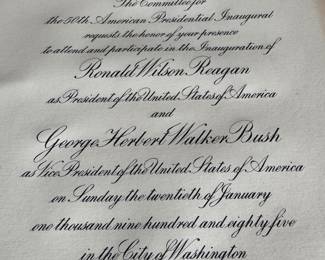 The Committee for
the 50th American Presidential Inaugural
requests the honor of your presence
to attend and participate in the Inauguration of
Ronald Wilson Reagan
as President of the United States of America
and
George Herbert Walker Bush
as Vice President of the United States of America
on Sunday the twentieth of January
one thousand nine hundred and eighty five
in the City of Washington